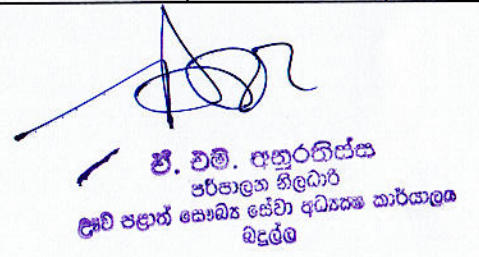 එම්. අනුරතිස්ස
පරිපාලන නිලධාරි
ඌව පළාත් සෞඛ්‍ය සේවා අධ්‍යක්ෂ කාර්යාලය
බදුල්ල